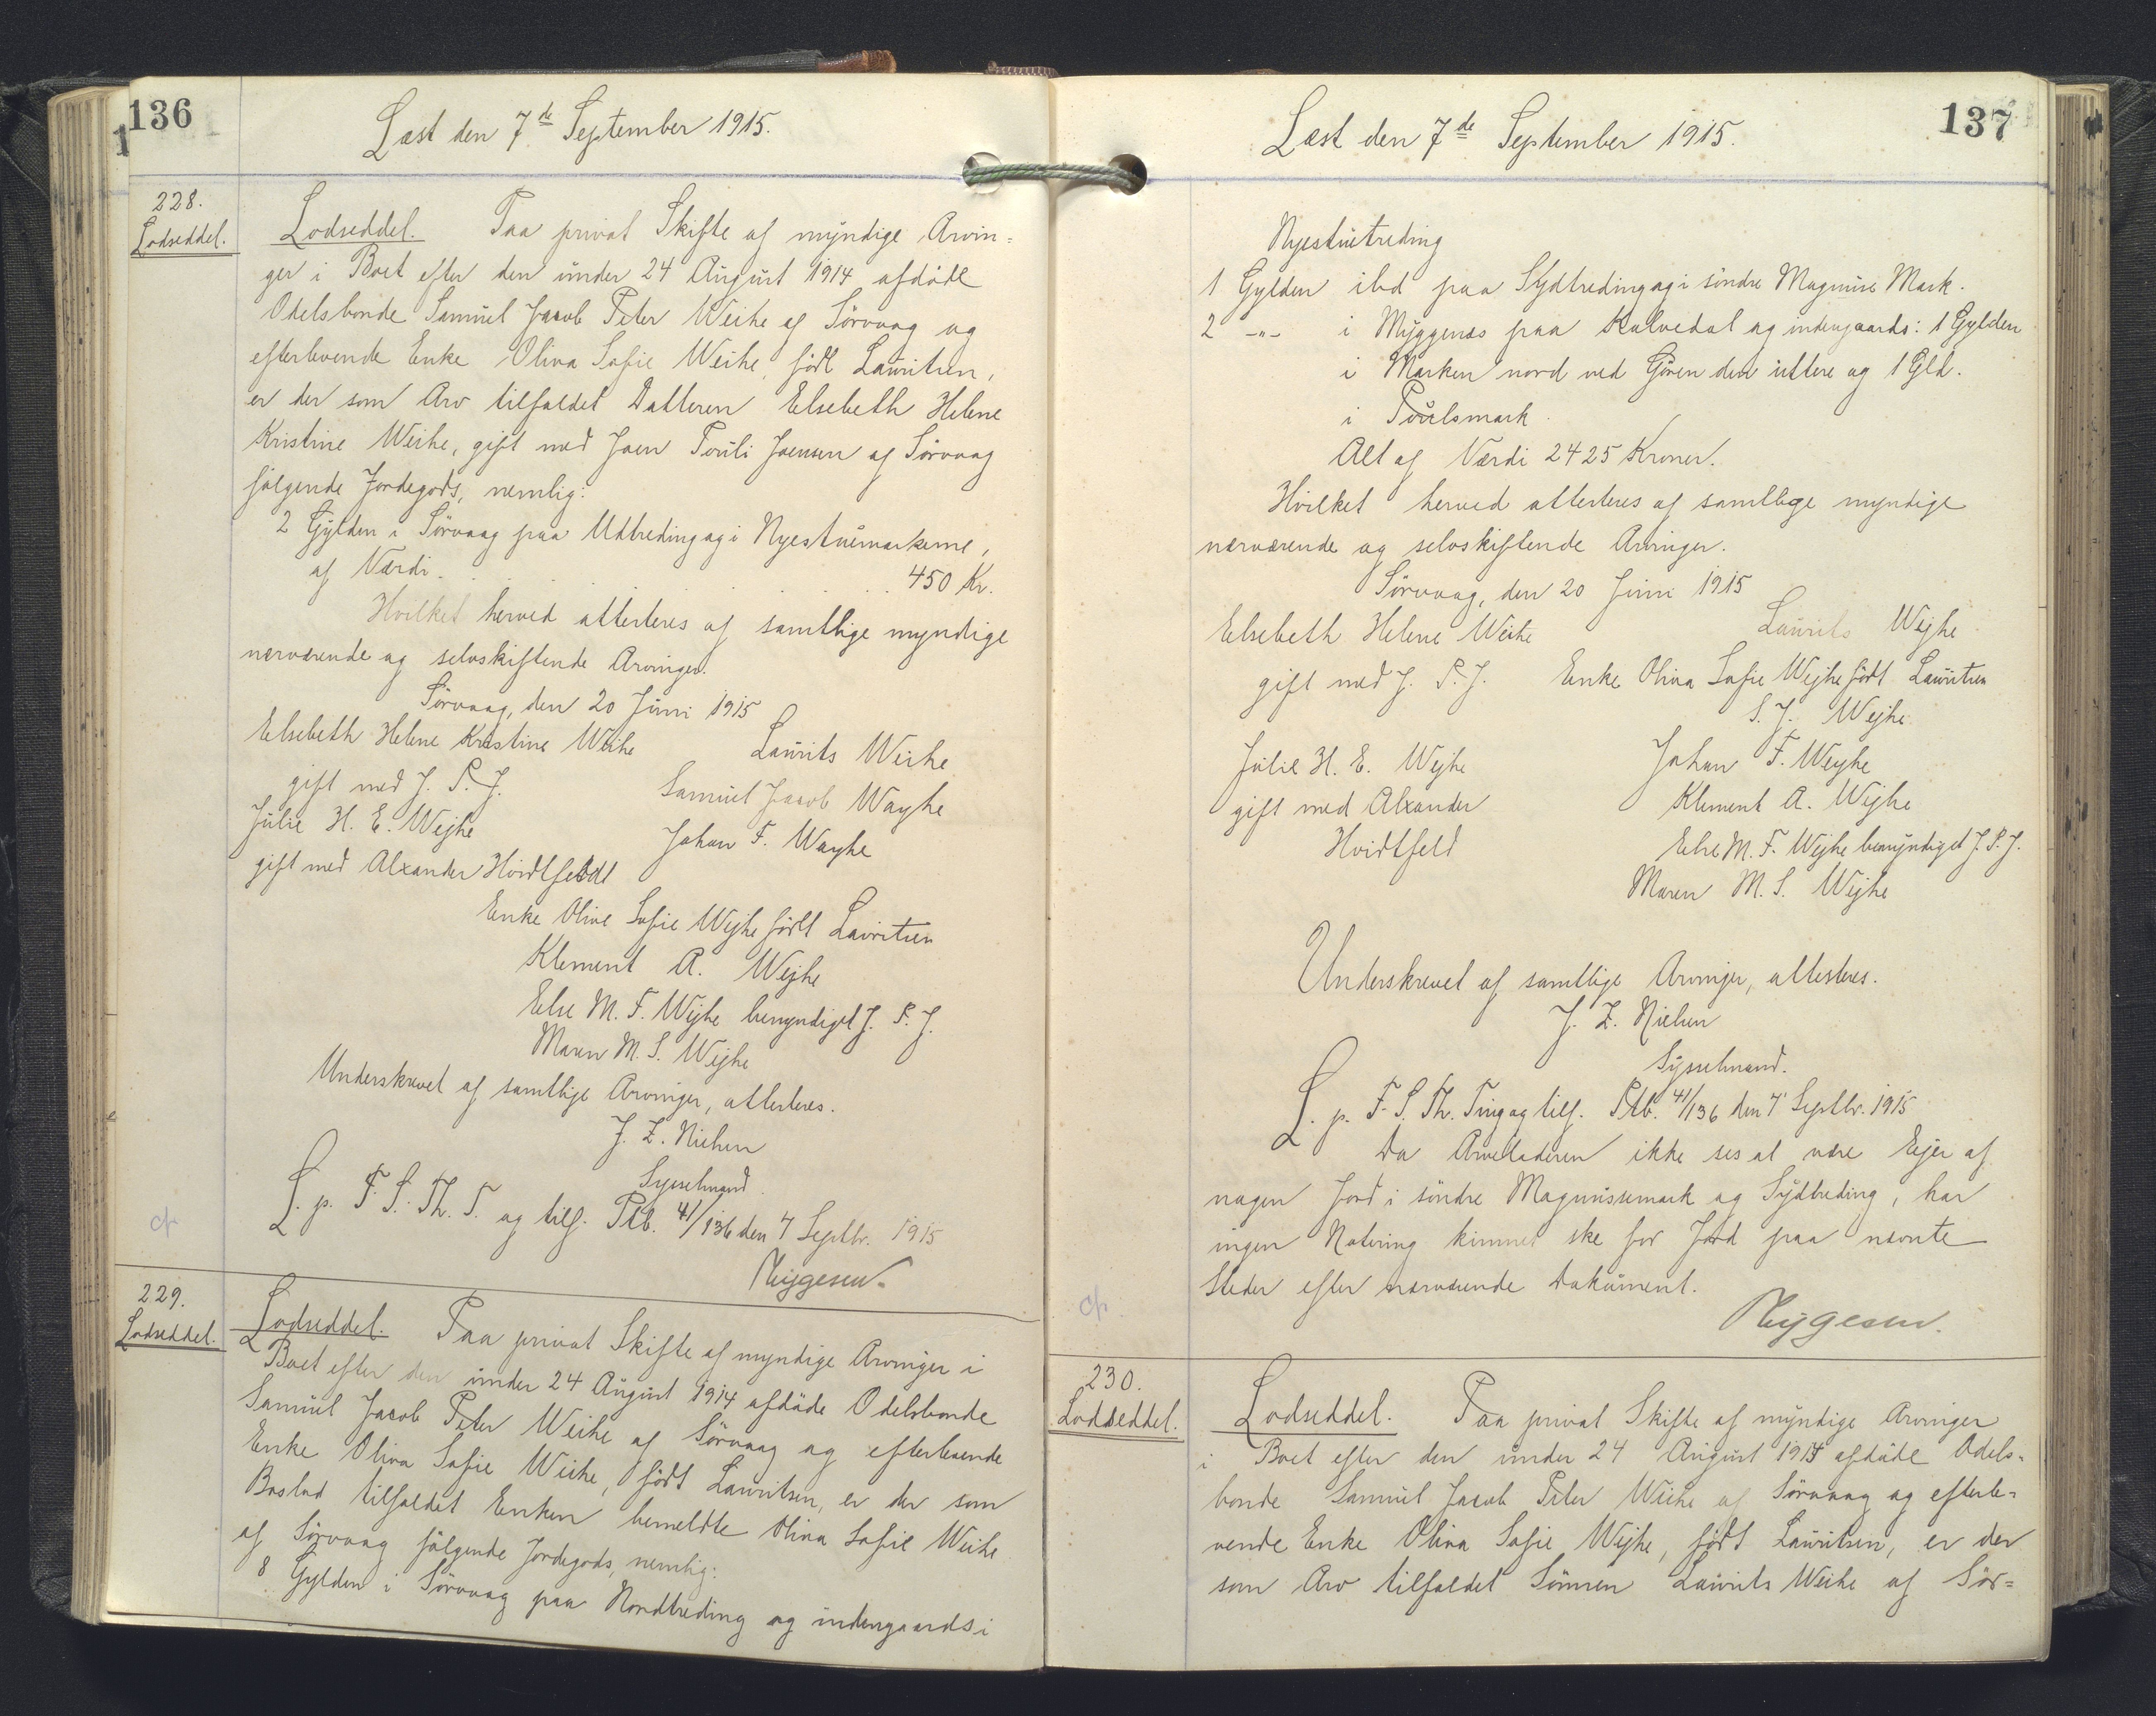 136
Læst den 7de September 1915.
228.
Lodseddel.
Lodseddel. Paa privat Skifte af myndige Arvin=
ger i Boet efter den under 24 August 1914 afdöde
Odelsbonde Samuel Jacob Peter Weihe af Sörvaag og
efterlevende Enke Oliva Sofie Weihe, født Lauritsen,
er der som Arv tilfaldet Datteren Elsebeth Helene
Kristine Weihe, gift med Joen Pouli Joensen af Sörvaag
følgende Jordegods, nemlig:
2 Gylden i Sörvaag paa Udtreding og i Nyestuemarkerne,
af Værdi . . . . . . . . 450 Kr.
Hvilket herved attesteres af samtlige myndige
nærværende og selvskiftende Arvinger.
Sörvaag, den 20 Juni 1915
Elsebeth Helene Kristine Weihe Laurits Weihe
gift med J. P. J. Samuel Jacob Wayhe
Julie H. E. Wejhe Johan F. Wayhe
gift med Alxander Hvidtfeldt
Enke Olive Sofie Wejhe født Lavritsen
Klement A. Wejhe
Else M. F. Wejhe bemyndiget J. P. J.
Maren M. S. Wejhe
Underskrevet af samtlige Arvinger, attesteres.
J. Z. Nielsen
Sysselmand.
L. p. F. S. Th. T. og tilf. Ptb. 41/136 den 7 Septbr. 1915
229.
Lodseddel.
Lodseddel. Paa privat Skifte af myndige Arvinger i
Boet efter den under 24 August 1914 afdöde Odelsbonde
Samuel Jacob Peter Weihe af Sörvaag og efterlevende
Enke Oliva Sofie Weihe, født Lauritsen, er der som
Boslod tilfaldet Enken bemeldte Oliva Sofie Weihe
af Sörvaag følgende Jordegods, nemlig:
8 Gylden i Sörvaag paa Nordtreding og indengaards i
137
Læst den 7de September 1915.
Nyestuetreding
1 Gylden ibd paa Sydtreding og i söndre Magnuse Mark.
2 -"- i Myggenæs paa Kalvedal og indengaards: 1 Gylden
i Marken nord ved Gören den uttere og 1 Gld.
i Poulsmark
Alt af Værdi 2425 Kroner.
Hvilket herved attesteres af samtlige myndige
nærværende og selvskiftende Arvinger.
Sörvaag, den 20 Juni 1915
Elsebeth Helene Weihe Laurits Wejhe
gift med J. P. J. Enke Oliva Sofie Wejhe født Lauritsen
S. J. Wejhe
Julie H. E. Wejhe Johan F. Weyhe
gift med Alxander Klement A. Wejhe
Hvidtfeld Else M. F. Wejhe bemyndiget J. P. J.
Maren M. S. Wejhe
Underskrevet af samtlige Arvinger, attesteres.
J. Z. Nielsen
Sysselmand.
L. p. F. S. Th. Ting og tilf. Ptb. 41/136 den 7 Septbr. 1915
Da Arveladeren ikke ses at være Ejer af
nogen Jord i söndre Magnussemark og Sydtreding, har
ingen Notering kunnet ske for Jord paa nævnte
Steder efter nærværende Dokument.
230.
Lodseddel.
Lodseddel. Paa privat Skifte af myndige Arvinger
i Boet efter den under 24 August 1914 afdöde Odels=
bonde Samuel Jacob Peter Weihe af Sörvaag og efterle=
vende Enke Oliva Sofie Wejhe, født Lauritsen, er der
som Arv tilfaldet Sönnen Laurits Weihe af Sör=